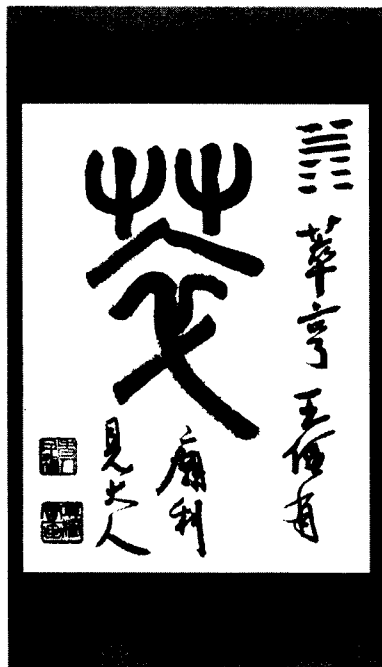 萃亨王假有
萃
廟利
見大人